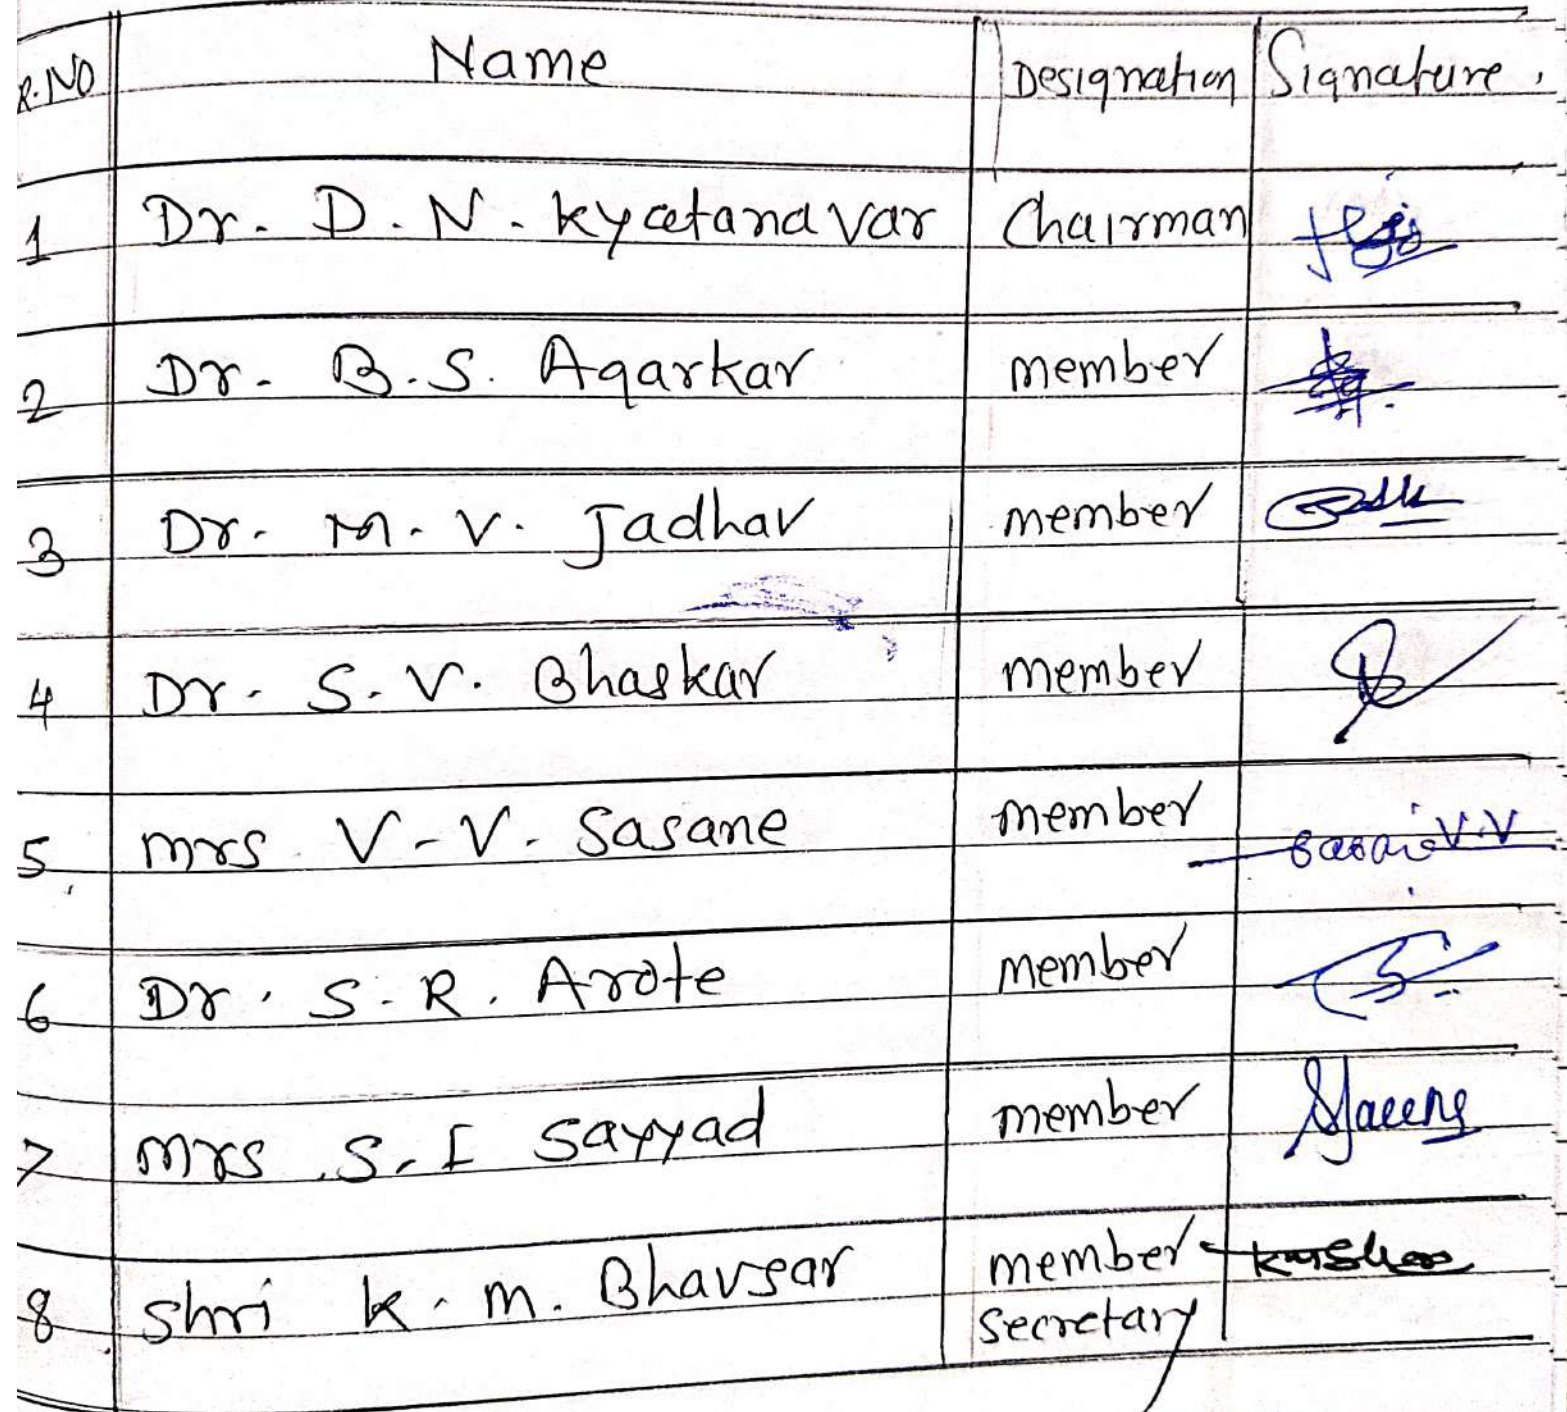 R.NO Name Designation Signature
1 Dr. D. N. Kyatanavar Chairman
2 Dr. B. S. Agarkar member
3 Dr. M. V. Jadhav member
4 Dr. S. V. Bhaskar member
5 mrs V. V. Sasane member V.V
6 Dr. S. R. Arote member
7 mrs S. I Sayyad member
8 Shri K. M. Bhavsar member
secretary